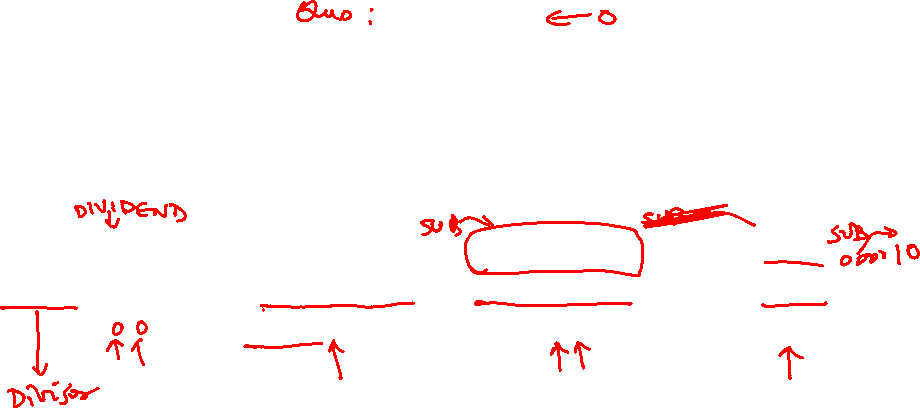 Quo : ← 0
DIVIDEND
SUB
SUB
000010
0 0
Divisor